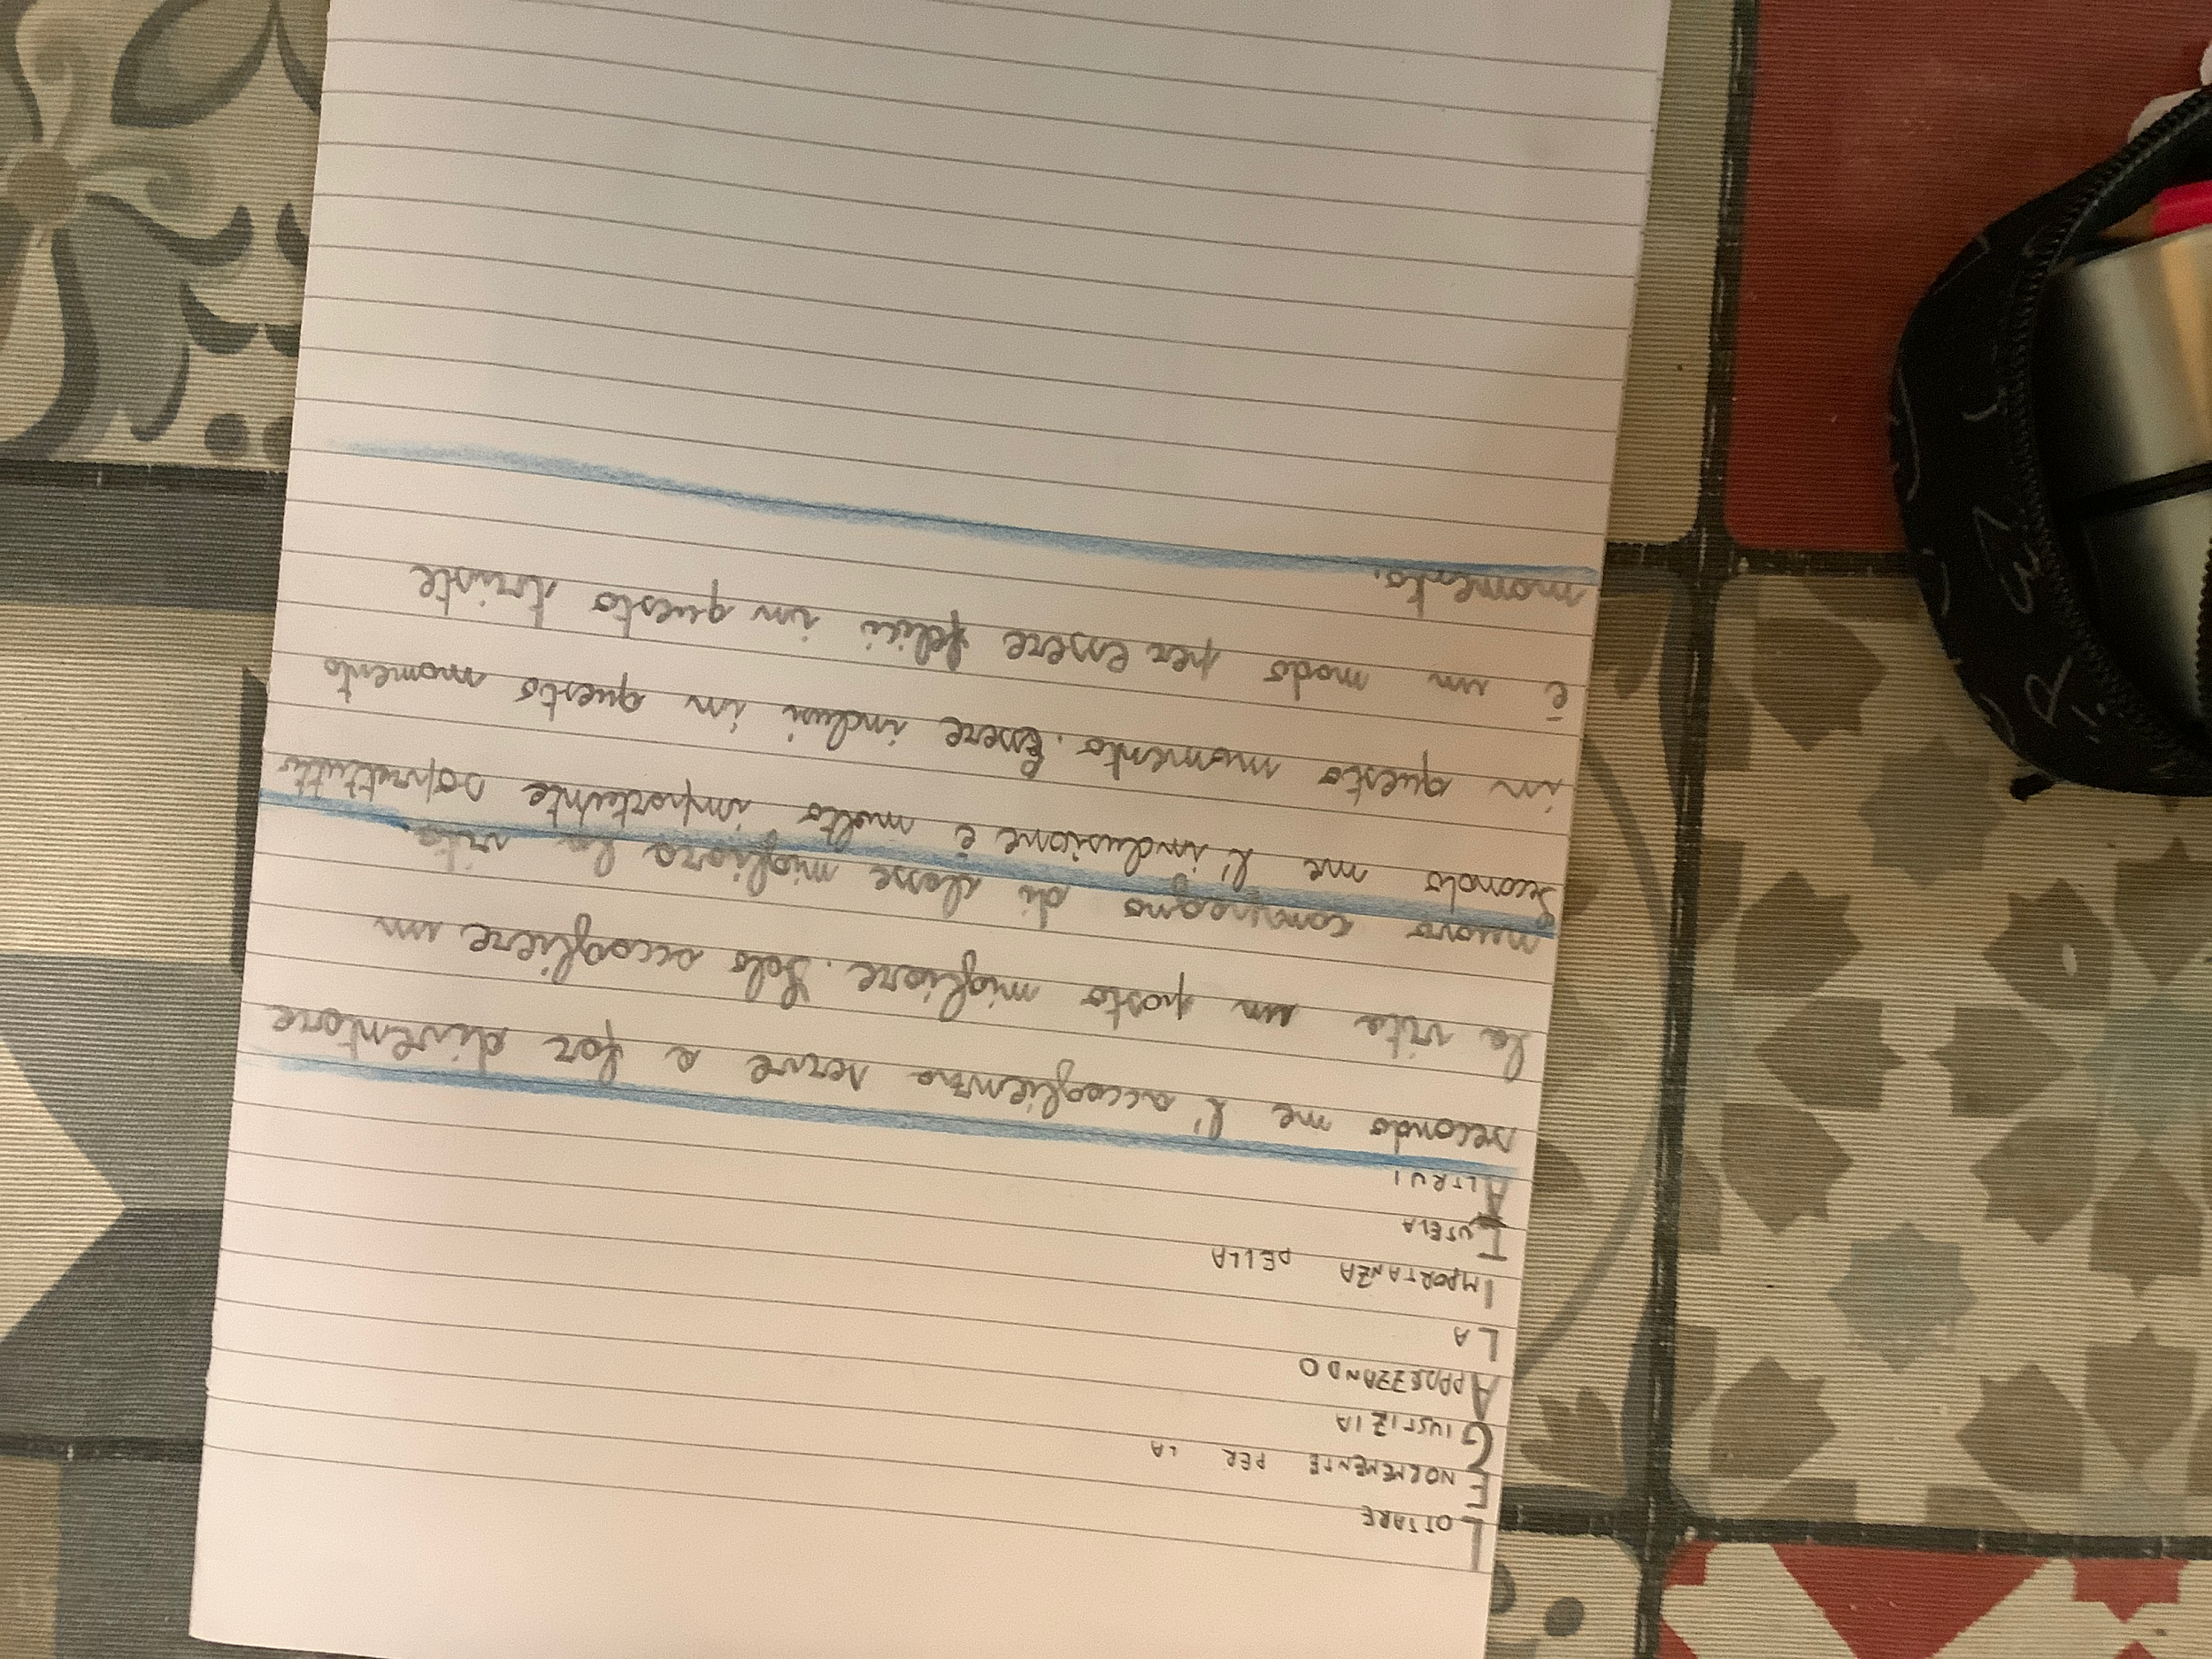 LOTTARE
ENORMEMENTE PER LA
GIUSTIZIA
APPREZZANDO
LA
IMPORTANZA DELLA
TUTELA
ALTRUI
secondo me l'accoglienza serve a far diventare
la vita un posto migliore. Solo accogliere un
nuovo compagno di classe migliora la vita.
Secondo me l'inclusione è molto importante sopratutto
in questo momento. Essere inclusi in questo momento
è un modo per essere felici in questo triste
momento.